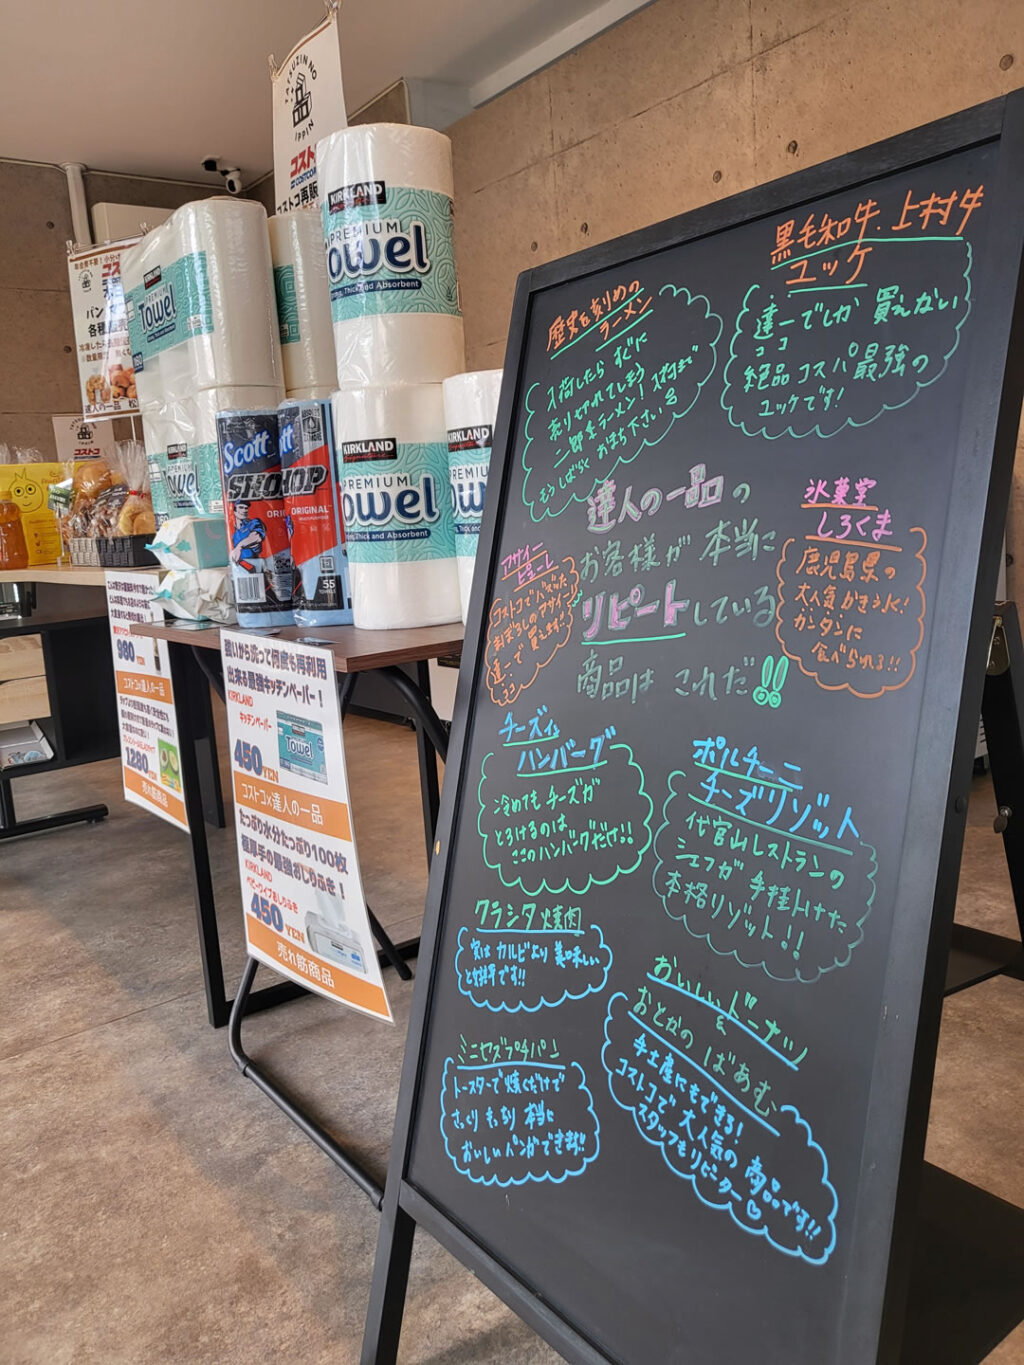 TATSUZIN NO
IPPIN
コスト
COSTCO
コストコ再販
コス
パン
各種
達人の一品
コストコ
KIRKLAND
PREMIUM
Towel
KIRKLAND
PREMIUM
Towel
Strong, Thick and Absorbent
Scott
SHOP
ORIGINAL
55
KIRKLAND
Signature
PREMIUM
Towel
Strong, Thick and Absorbent
KIRKLAND
980 YEN
コストコ×達人の一品
1280 YEN
売れ筋商品
強いから洗って何度も再利用
出来る最強キッチンペーパー!
KIRKLAND
キッチンペーパー
450 YEN
コストコ×達人の一品
たっぷり水分たっぷり100枚
極厚手の最強おしりふき!
KIRKLAND
ベビーワイプおしりふき
450 YEN
売れ筋商品
黒毛和牛.上村牛
ユッケ
達一でしか買えない
ココ
絶品コスパ最強の
ユッケです!
歴史を刻めの
ラーメン
入荷したらすぐに
売り切れてしまう
二郎系ラーメン!入荷まで
もうしばらくお待ち下さい
達人の一品の
お客様が本当に
リピートしている
商品はこれだ!!
氷菓堂
しろくま
鹿児島県の
大人気かき氷!
カンタンに
食べられる!!
アサイー
ピューレ
コストコでバズった
達一で買えます!!
ココ
チーズin
ハンバーグ
冷めてもチーズが
とろけるのは
ここのハンバーグだけ!!
ポルチーニ
チーズリゾット
代官山レストランの
シェフが手掛けた
本格リゾット!!
クラシタ焼肉
実はカルビより美味しい
と評判です!!
おいしいドーナツ
&
おとなのばあむ
手土産にもできる!
コストコで大人気の商品です!!
スタッフもリピーター♡
ミニセズプチパン
トースターで焼くだけで
さっくりもっちり本当に
おいしいパンができます!!